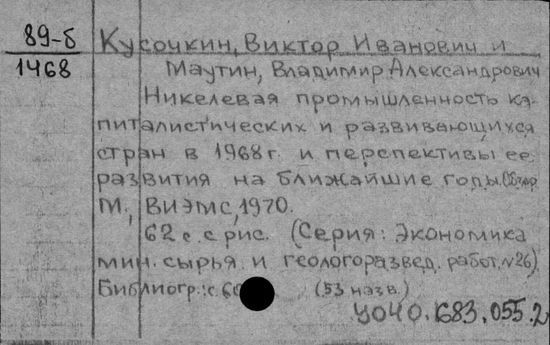 89-6
1468
Кусочкин, Виктор Иванович и
Маутин, Владимир Александрович
Никелевая промышленность ка-
питалистических и развивающихся
стран в 1968г. и перспективы ее
развития на ближайшие годы. (Обзор
М., ВИЭМС, 1970.
62 с. с рис. (Серия: Экономика
мин. сырья и геологоразвед. работ. №26).
Библиогр.: с. (53 назв.)
УО40.683.055.2